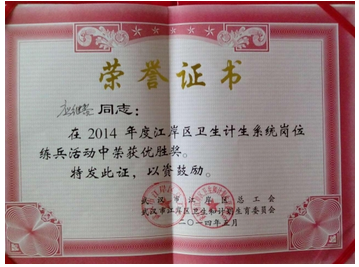 荣誉证书
同志：
在2014年度江岸区卫生计生系统岗位
练兵活动中荣获优胜奖。
特发此证，以资鼓励。
武汉市江岸区总工会
武汉市江岸区卫生和计划生育委员会
二〇一四年五月